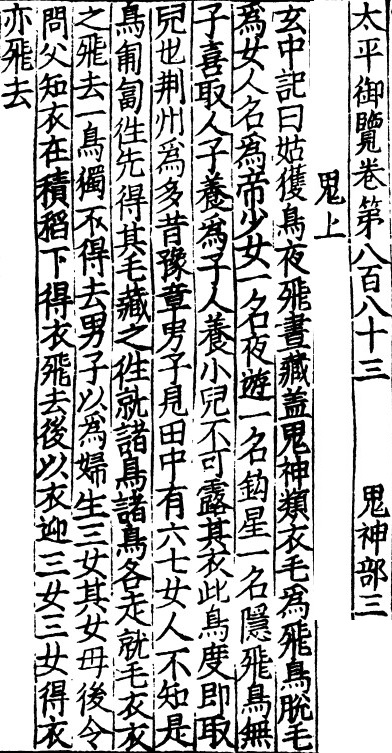 太平御覽卷第八百八十三 鬼神部三
鬼上
玄中記曰姑獲鳥夜飛晝藏盖鬼神類衣毛爲飛鳥脫毛
爲女人名爲帝少女一名夜遊一名鈎星一名隱飛鳥無
子喜取人子養爲子人養小兒不可露其衣此鳥度即取
兒也荆州爲多昔豫章男子見田中有六七女人不知是
鳥匍匐徃先得其毛藏之徃就諸鳥諸鳥各走就毛衣衣
之飛去一鳥獨不得去男子以爲婦生三女其女母後令
問父知衣在積稻下得衣飛去後以衣迎三女三女得衣
亦飛去